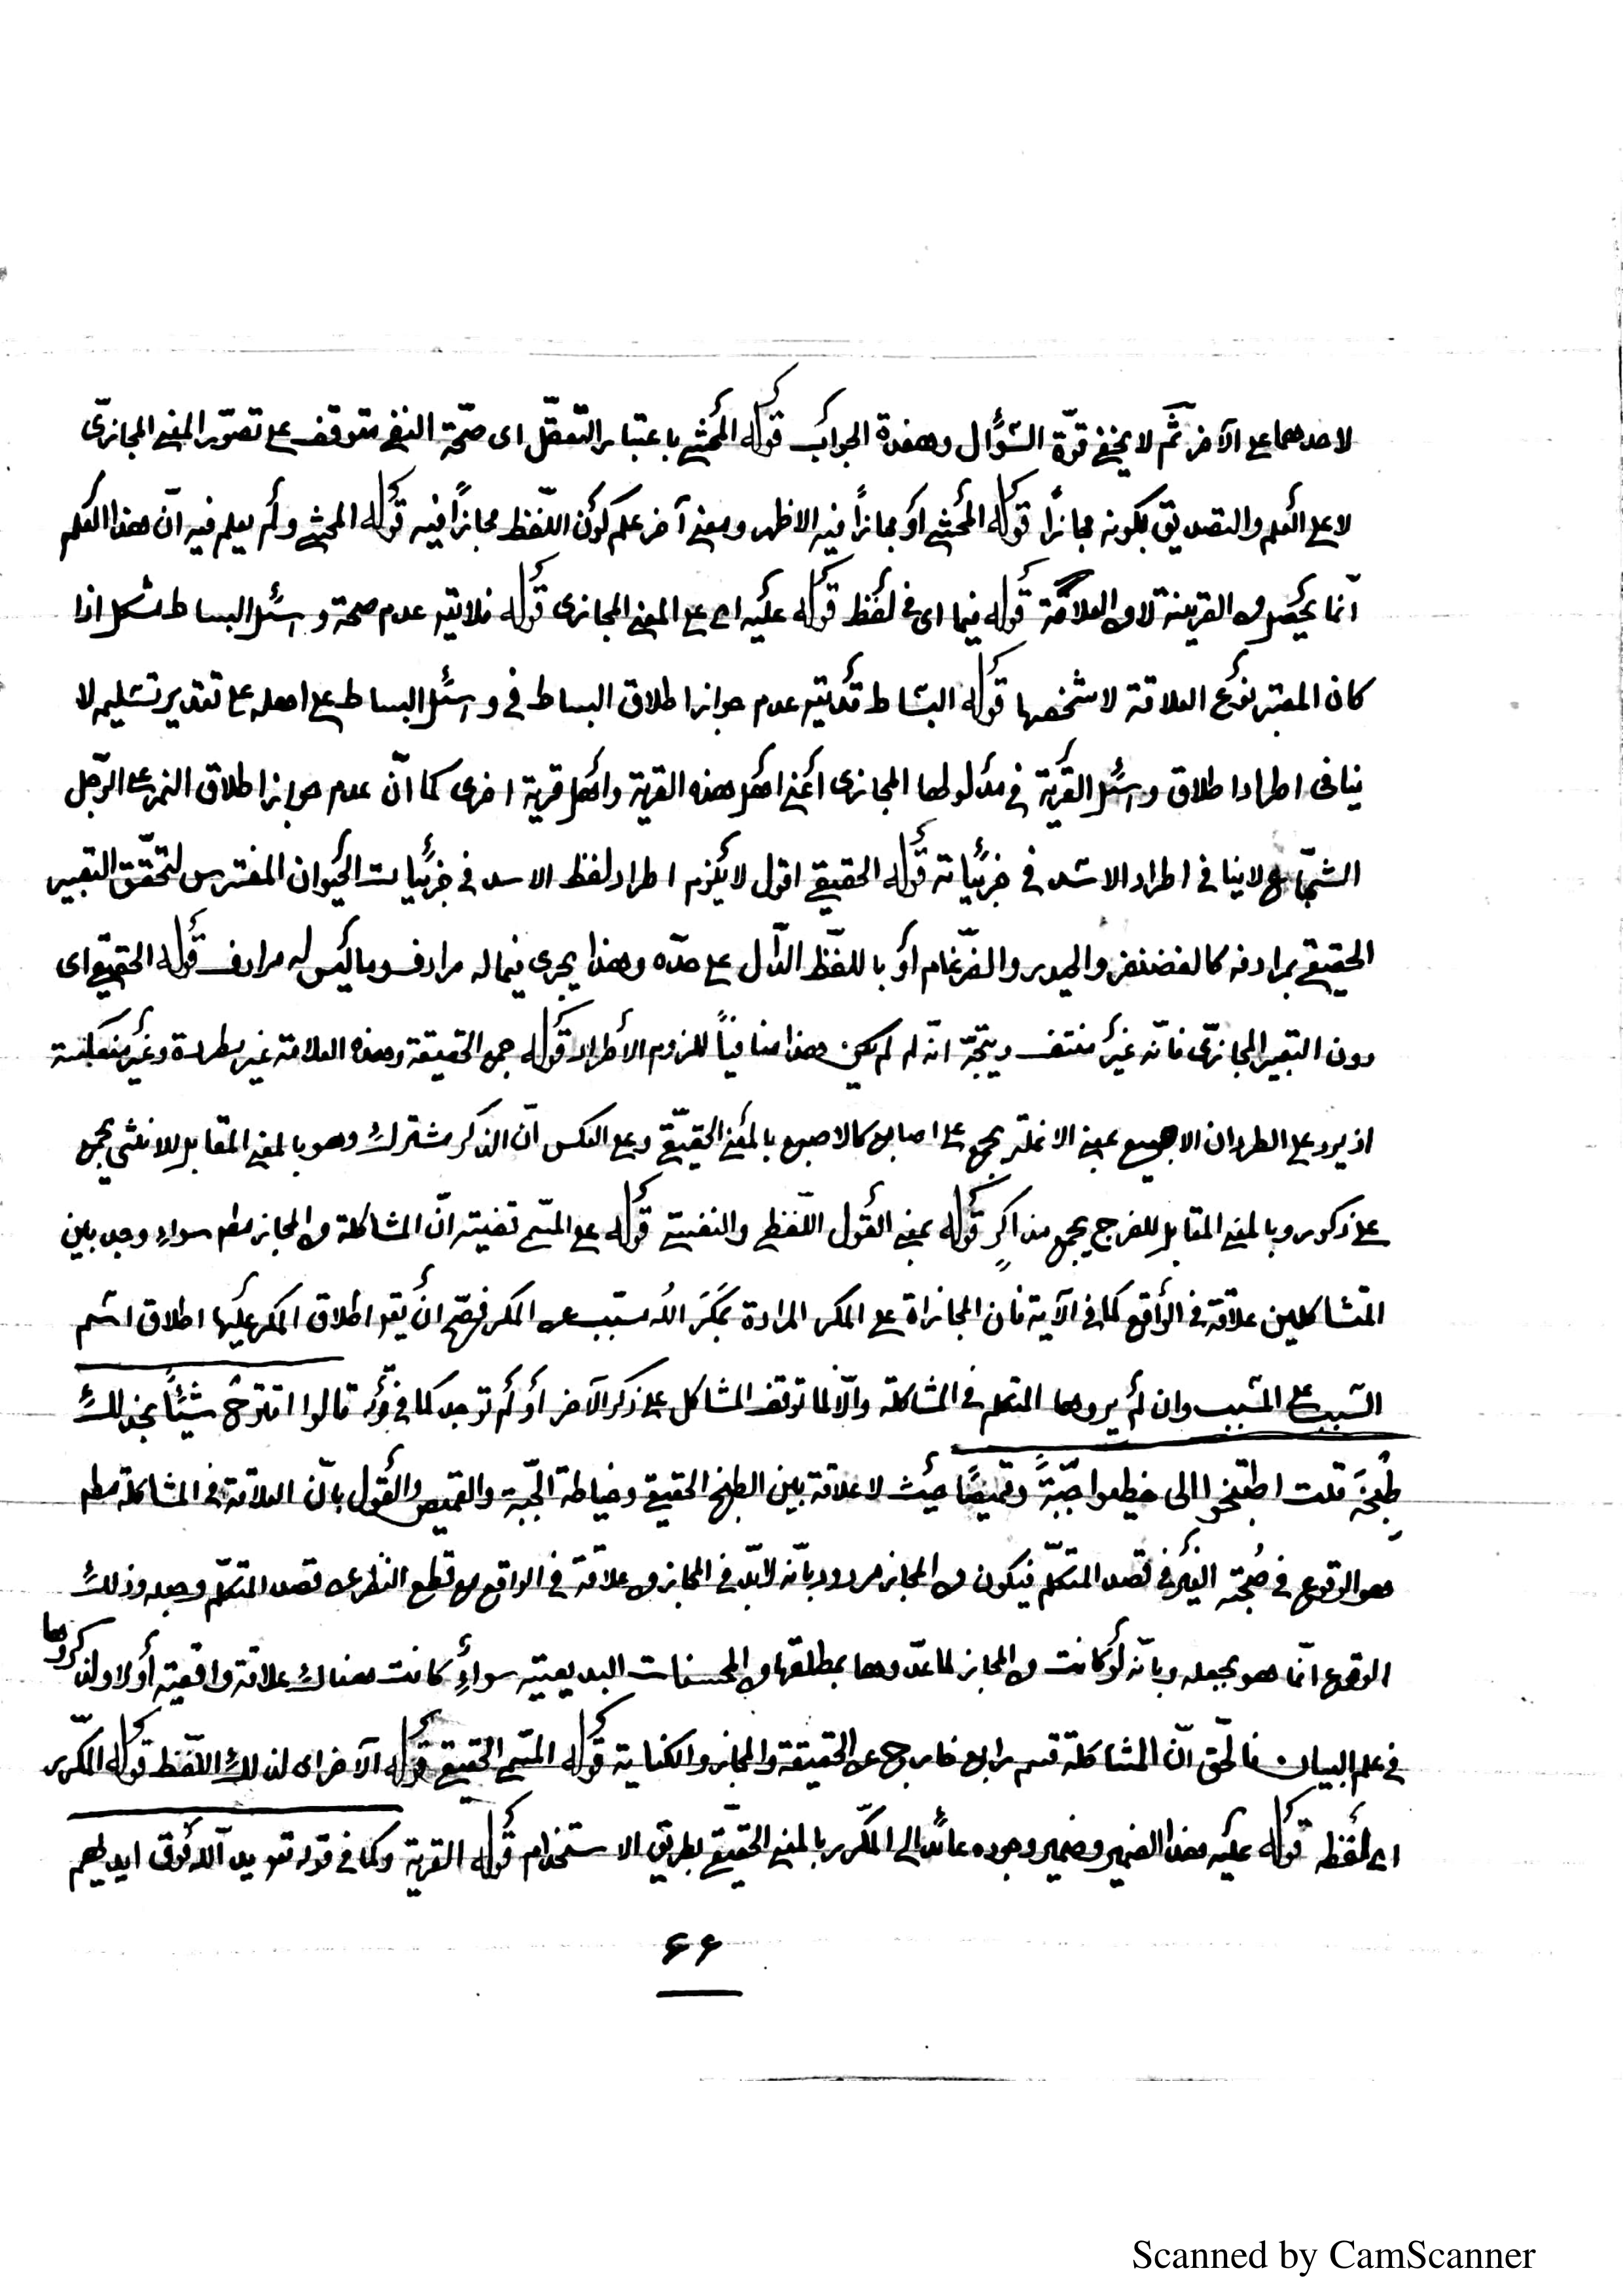 لاحدهما على الآخر ثم لا يخفى قوّة السّؤال وهذه الجواب قوله المحشى باعتبار التعقّل اى صحّة النفى متوقف على تصوّر المعنى المجازىّ
لا على العلم والتصديق بكونه مجازاً قوله المحشى او مجازاً فيه الاظهر ومعنى آخر علم كون اللّفظ مجازاً فيه قوله المحشى ولم يعلم فيه انّ هذا العلم
انّما يحصل من القرينة لا من العلاقة قوله فيما اى فى لفظ قوله عليه اى على المعنى المجازى قوله فلا تيه عدم صحة و اسئل البساط مشكل اذا
كان المعتبر نوع العلاقة لا شخصها قوله البساط قد تيه عدم جواز اطلاق البساط فى و اسئل البساط على اهله على تقدير تسليمه لا
ينافى اطراد اطلاق و اسئل القرية فى مدلولها المجازى اعنى اهل هذه القرية واهل قرية اخرى كما انّ عدم جواز اطلاق النمر على الرّجل
الشجاع لا ينافى اطراد الاسد فى جزئياته قوله الحقيقى اقول لا يلزم اطراد لفظ الاسد فى جزئيات الحيوان المفترس لتحقّق التعبير
الحقيقى بمرادفه كالغضنفر والحيدر والضّرغام او باللفظ الدّال على حدّه وهذا يجرى فيما له مرادف وما ليس له مرادف قوله الحقيقى اى
دون التعبير المجازىّ فانّه غير منتف ويتجه انّه لم لم يكن هذا منافياً للزوم الاطراد قوله جمع الحقيقة وهذه العلامة غير مطردة وغير منعكسة
اذ يرد على الطرد ان الاصبع بمعنى الانملة يجمع على اصابع كالاصبع بالمعنى الحقيقى وعلى العكس انّ الذكر مشترك وهو بالمعنى المقابل للانثى يجمع
على ذكور وبالمعنى المقابل للفرج يجمع مذاكر قوله بمعنى القول اللّفظى والنفسية قوله على المسمى تضيته انّ المشاكلة من المجاز مطم سواء وجد بين
المتشاكلين علاقة فى الواقع كما فى الآية فان المجازاة على المكر المرادة بمَكَرَ الله مسبب عن المكر فصحّ ان يقو اطلاق المكر عليها اطلاق اسم
السّبب على المسبب وان لم يردها المتكلم فى المشاكلة والّا لما توقف المشاكل على ذكر الآخر أو لم توجد كما فى قوله قالوا اقترح شيئاً نجد لك
طبخَه قلت اطبخوا لى خيطوا جبّةً وقميصًا حيث لا علاقة بين الطبخ الحقيقى وخياطة الجبّة والقميص والقول بانّ العلاقة فى المشاكلة مطم
هو الوقوع فى صُحبة الغير فى قصد المتكلّم فيكون من المجاز مردود بانّه لا بدّ فى المجاز من علاقة فى الواقع مع قطع النظر عن قصد المتكلّم وجعله وذلك
الوقوع انّما هو بجعله وبانّه لو كانت من المجاز لما عدّوها بمطلقها من المحسنات البديعيّة سواء كانت هناك علاقة واقعية أو لا ولذكروها
فى علم البيان فالحقّ انّ المشاكلة قسم رابع خارج عن الحقيقة والمجاز والكناية قوله المسمى الحقيقى قوله الآخر اى لذلك اللّفظ قوله المكرّر
اى لفظه قوله عليه هذا الضمير وضمير وجوده عائد الى المكرر بالمعنى الحقيقى بطريق الاستخدام قوله القرية وكما فى قوله تعو يد الله فوق ايديهم
۶۶
Scanned by CamScanner